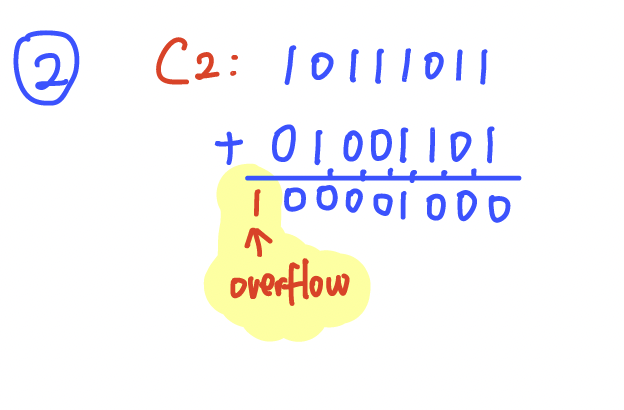 2 C2: 10111011
+ 01001101
1 00001000
↑
overflow